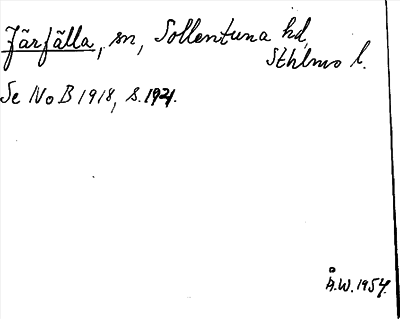 Järfälla, sn, Sollentuna hd,
Sthlms l.
Se NoB 1918, s. 192.
Å.W. 1954.